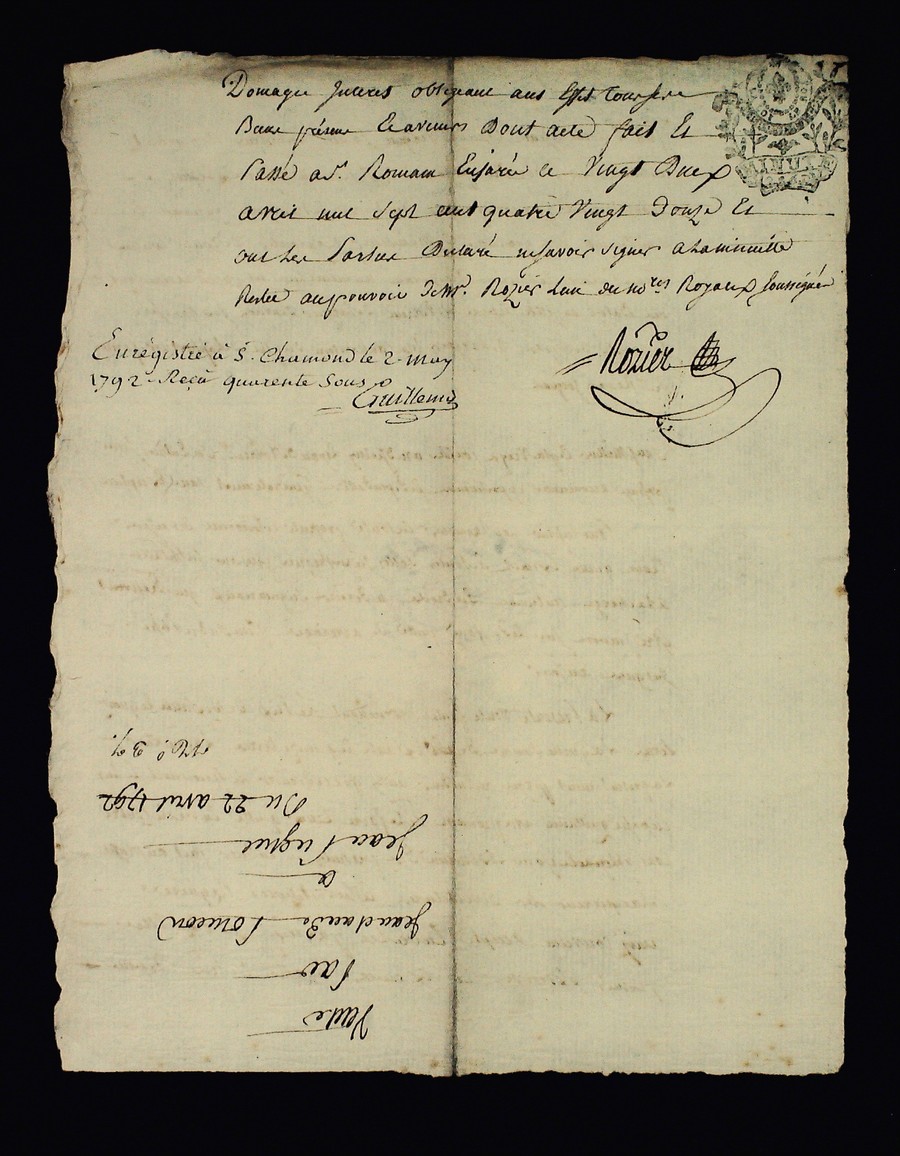 Domages Interes obligeant aus
Biens présens Et avenirs Dont acte fait Et
Passé a St. Romain Enjarés ce Vingt Deux
avril mil sept cent quatre Vingt Douze Et
ont Les Parties Declaré ne savoir signer a La minutte
Restée au pouvoir De Mr. Rozier L'un des no.res Royaux soussigné
Rozier
MINUTE
Enrégistré à St. Chamond le 2. may
1792. Reçu quarente sous
Guillemin
Vente
Par
Jean claude
a
Jean
Du 22 avril 1792